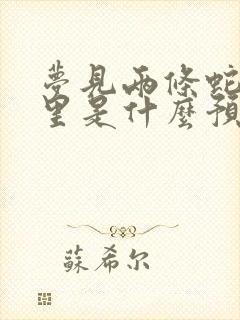 夢見兩條蛇
里是什麼預
蘇希尔